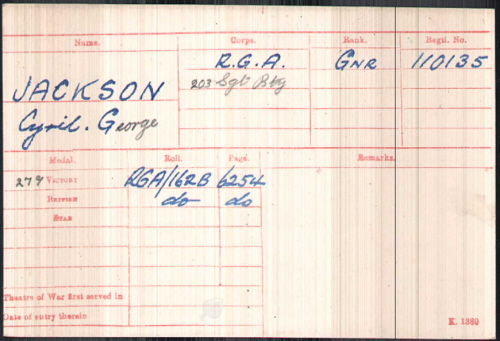 Name. Corps. Rank. Regtl. No.
R.G.A. GNR 110135
JACKSON
203 Sge Bty
Cyril. George
Medal. Roll. Page. Remarks.
279 VICTORY RGA/162B 6254
BRITISH do do
STAR
Theatre of War first served in
Date of entry therein
K. 1380